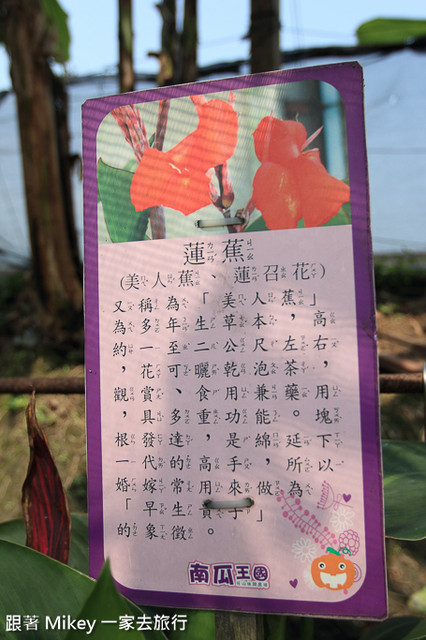 蓮蕉
(美人蕉、蓮召花)
又稱為「美人蕉」,
為多年生草本,高
約一至二公尺左右
,花可曬乾泡茶,
觀賞、食用兼藥用
,具多重功能。塊
根發達,是綿延下
一代的高手,所以
婚嫁時常用來做為
「早生貴子」
的象徵。
南瓜王國
跟著 Mikey 一家去旅行